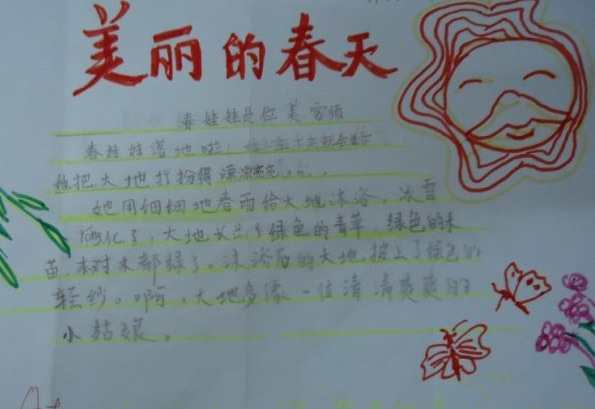 美丽的春天
春娃娃是位美容师
春娃娃落地啦！
她把大地打扮得漂漂亮亮。
她用细细地春雨给大地沐浴。冰雪
融化了，大地长出了绿色的青草，绿色的禾
苗，树木都绿了。沐浴后的大地，披上了绿色的
轻纱。啊，大地多像一位清清爽爽的
小姑娘。